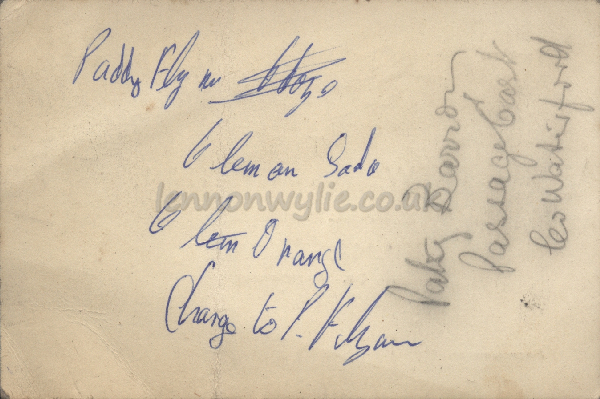 Paddy Flynn
6 lemon Soda
lennonwylie.co.uk
6 lem Orange
Charge to P. Flynn
Patsy Barron
Passage East
Co Waterford